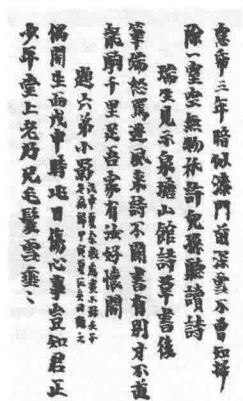 三年暗似漆門前深雪不曾知掃
除一室空無物祇許兒孫聽讀詩
瑞生見示泉塘山館詩草書後
筆端怒罵逐風來詩不關書有別才不道
龍駒千里足吾家有汝好懷開
題六弟小影
偶開生面戊申時此日傷心事豈知君正
少年堂上老乃兄毛髮雪垂〻